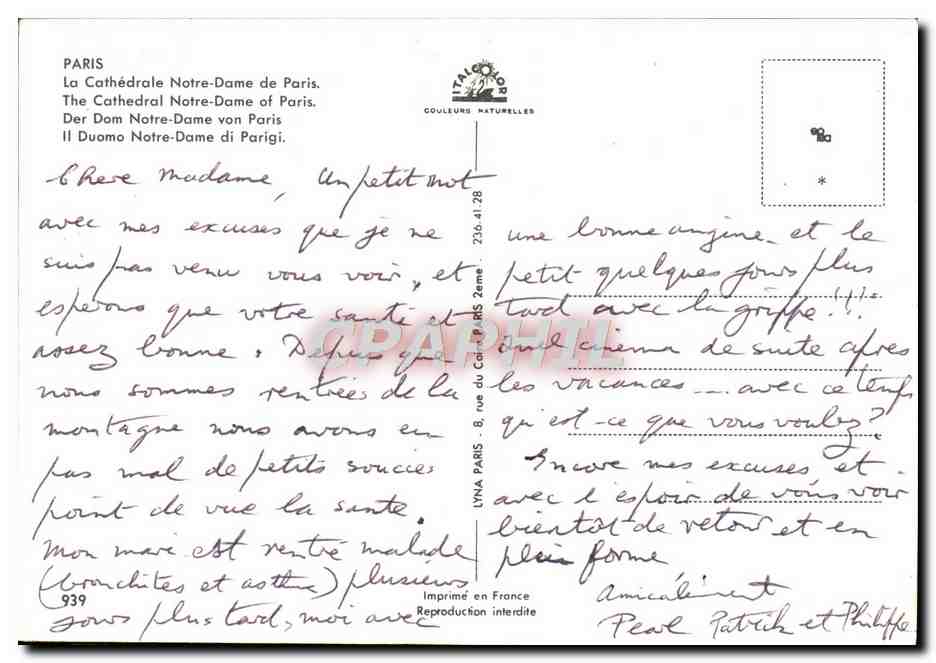 PARIS
La Cathédrale Notre-Dame de Paris.
The Cathedral Notre-Dame of Paris.
Der Dom Notre-Dame von Paris
Il Duomo Notre-Dame di Parigi.
ITALCOLOR
COULEURS NATURELLES
Chere Madame, Un petit mot
avec mes excuses que je ne
suis pas venu vous voir, et
esperons que votre santé et
assez bonne. Depuis que
nous sommes rentrées de la
montagne nous avons eu
pas mal de petits soucies
point de vue la sante.
Mon mari est rentré malade
(bronchites et asthme) plusieurs
jours plus tard, moi avec
939
LYNA PARIS - 8, rue du Caire, PARIS 2eme - 236-41-28
une bonne angine - et le
petit quelques jours plus
tard avec la grippe!!!
Quel cinema de suite apres
les vacances --- avec ce temps
qu'est-ce que vous voulez?
Encore mes excuses et
avec l'espoir de vous voir
bientôt de retour et en
plein forme
Amicalement
Pearl Patrik et Philippe
Imprimé en France
Reproduction interdite
CPAPHIL